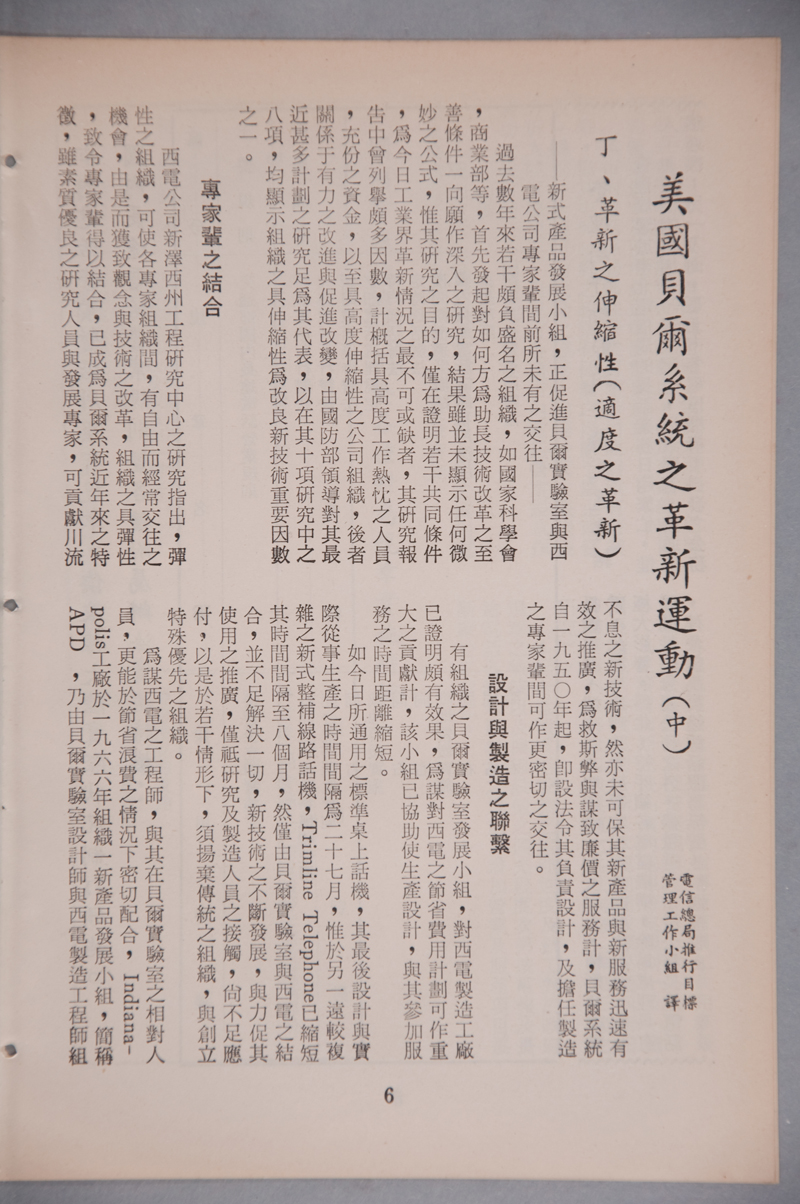 美國貝爾系統之革新運動（中）
電信總局推行目標
管理工作小組　譯
丁、革新之伸縮性（適度之革新）
——新式產品發展小組，正促進貝爾實驗室與西
電公司專家輩間前所未有之交往——
過去數年來若干頗負盛名之組織，如國家科學會
，商業部等，首先發起對如何方爲助長技術改革之至
善條件一向願作深入之研究，結果雖並未顯示任何微
妙之公式，惟其研究之目的，僅在證明若干共同條件
，爲今日工業界革新情況之最不可或缺者，其研究報
告中曾列舉頗多因數，計概括具高度工作熱忱之人員
，充份之資金，以至具高度伸縮性之公司組織，後者
關係于有力之改進與促進改變，由國防部領導對其最
近甚多計劃之研究足爲其代表，以在其十項研究中之
八項，均顯示組織之具伸縮性爲改良新技術重要因數
之一。
專家輩之結合
西電公司新澤西州工程研究中心之研究指出，彈
性之組織，可使各專家組織間，有自由而經常交往之
機會，由是而獲致觀念與技術之改革，組織之具彈性
，致令專家輩得以結合，已成爲貝爾系統近年來之特
徵，雖素質優良之研究人員與發展專家，可貢獻川流
不息之新技術，然亦未可保其新產品與新服務迅速有
效之推廣，爲救斯弊與謀致廉價之服務計，貝爾系統
自一九五〇年起，卽設法令其負責設計，及擔任製造
之專家輩間可作更密切之交往。
設計與製造之聯繫
有組織之貝爾實驗室發展小組，對西電製造工廠
已證明頗有效果，爲謀對西電之節省費用計劃可作重
大之貢獻計，該小組已協助使生產設計，與其參加服
務之時間距離縮短。
如今日所通用之標準桌上話機，其最後設計與實
際從事生產之時間間隔爲二十七月，惟於另一遠較複
雜之新式整補線路話機，Trimline Telephone已縮短
其時間間隔至八個月，然僅由貝爾實驗室與西電之結
合，並不足解決一切，新技術之不斷發展，與力促其
使用之推廣，僅祗研究及製造人員之接觸，尙不足應
付，以是於若干情形下，須揚棄傳統之組織，與創立
特殊優先之組織。
爲謀西電之工程師，與其在貝爾實驗室之相對人
員，更能於節省浪費之情況下密切配合，Indiana-
polis工廠於一九六六年組織一新產品發展小組，簡稱
APD，乃由貝爾實驗室設計師與西電製造工程師組
6